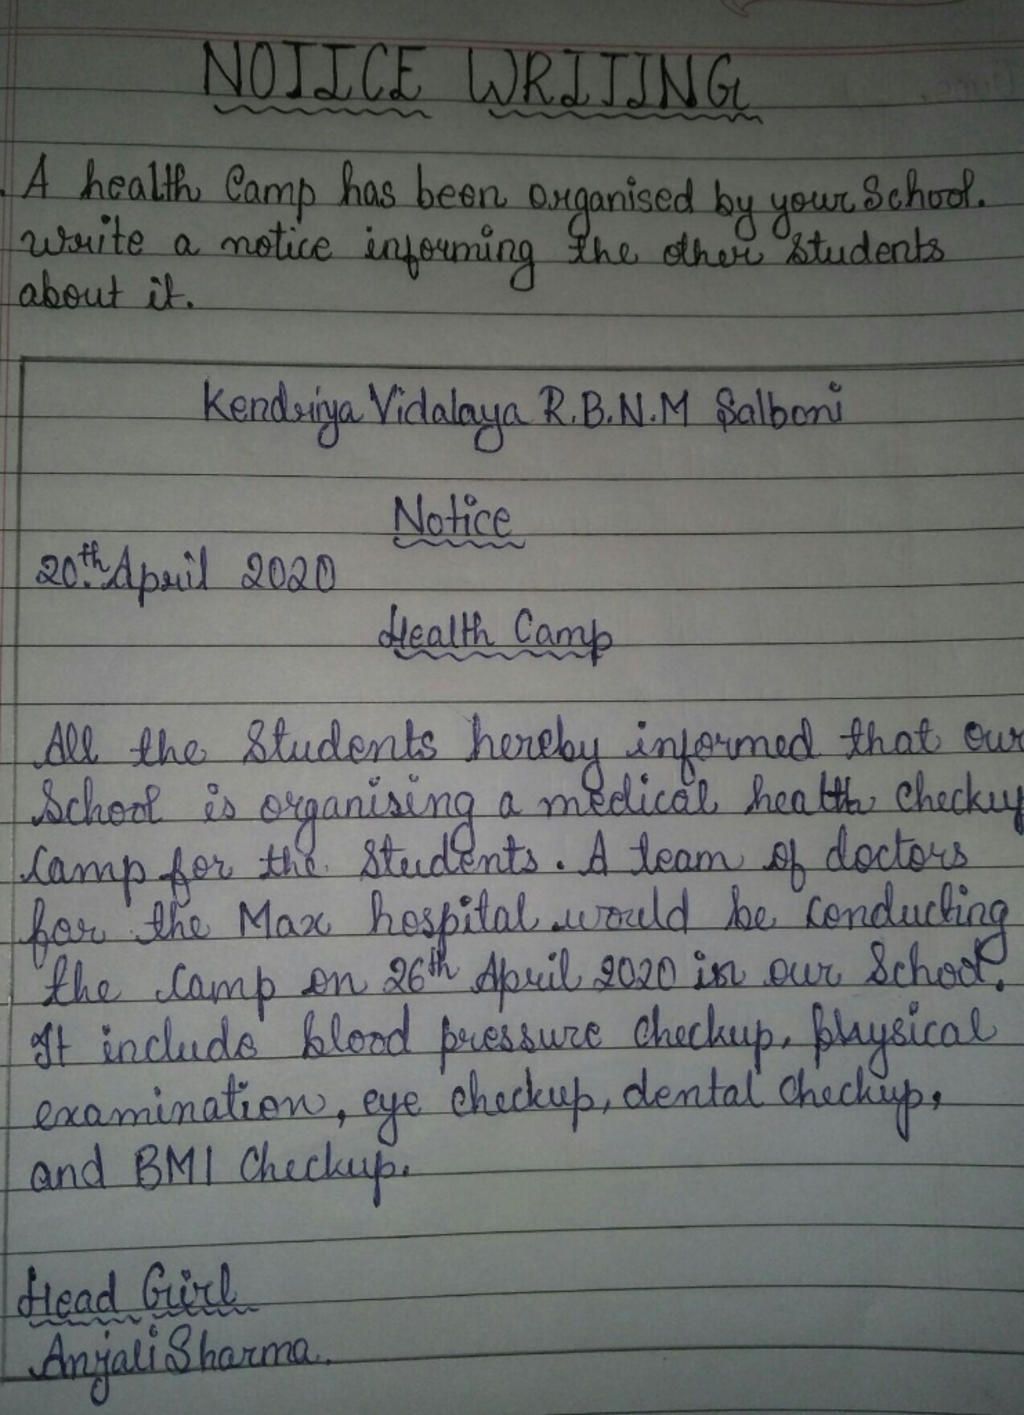 NOTICE WRITING
A health Camp has been organised by your School.
write a notice informing the other students
about it.
Kendriya Vidalaya R.B.N.M Salboni
Notice
20th April 2020
Health Camp
All the Students hereby informed that our
School is organising a medical health checkup
camp for the Students. A team of doctors
for the Max hospital would be conducting
the camp on 26th April 2020 in our School.
It include blood pressure checkup, physical
examination, eye checkup, dental checkup,
and BMI checkup.
Head Girl
Anjali Sharma.